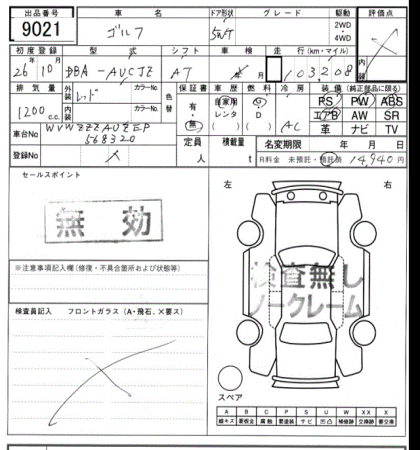 出品番号 車名 ドア形状 グレード 駆動 評価点
9021 ゴルフ 5WT 2WD 4WD
初度登録 型式 シフト 車検 走行(km・マイル) 内装
26年10月 DBA-AUCJZ AT 年 月 103,208
排気量 外装 レッド カラーNo. 色替 保証書 車歴 燃料 冷房 装備(純正部品に限る)
1200c.c. 内装 カラーNo. 有・無 自家用 レンタ G D AC PS PW ABS
エアB AW SR
革 ナビ TV
車台No WVWZZZAUZEP
568320
登録No 定員 人 積載量 t 名変期限 年 月 日
R料金 未預託・預託済 14,940円
セールスポイント 左 右
無効
検査無し
ノークレーム
※注意事項記入欄(修復・不具合箇所および状態等)
検査員記入 フロントガラス(A・飛石、×要ス)
スペア
A B C P S U W X XX
線キズ 要板金 腐蝕 要塗装 サビ 凹凸 補修跡 交換跡 要交換